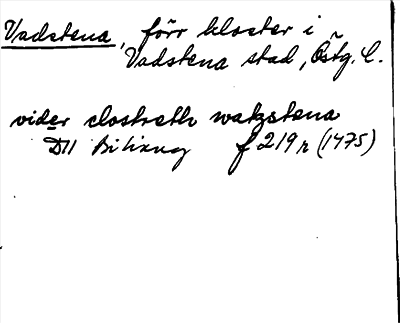 Vadstena, förr kloster i
Vadstena stad, Östg. L.
vider clostreth watzstena
D11 Bihang f 219 r (1475)